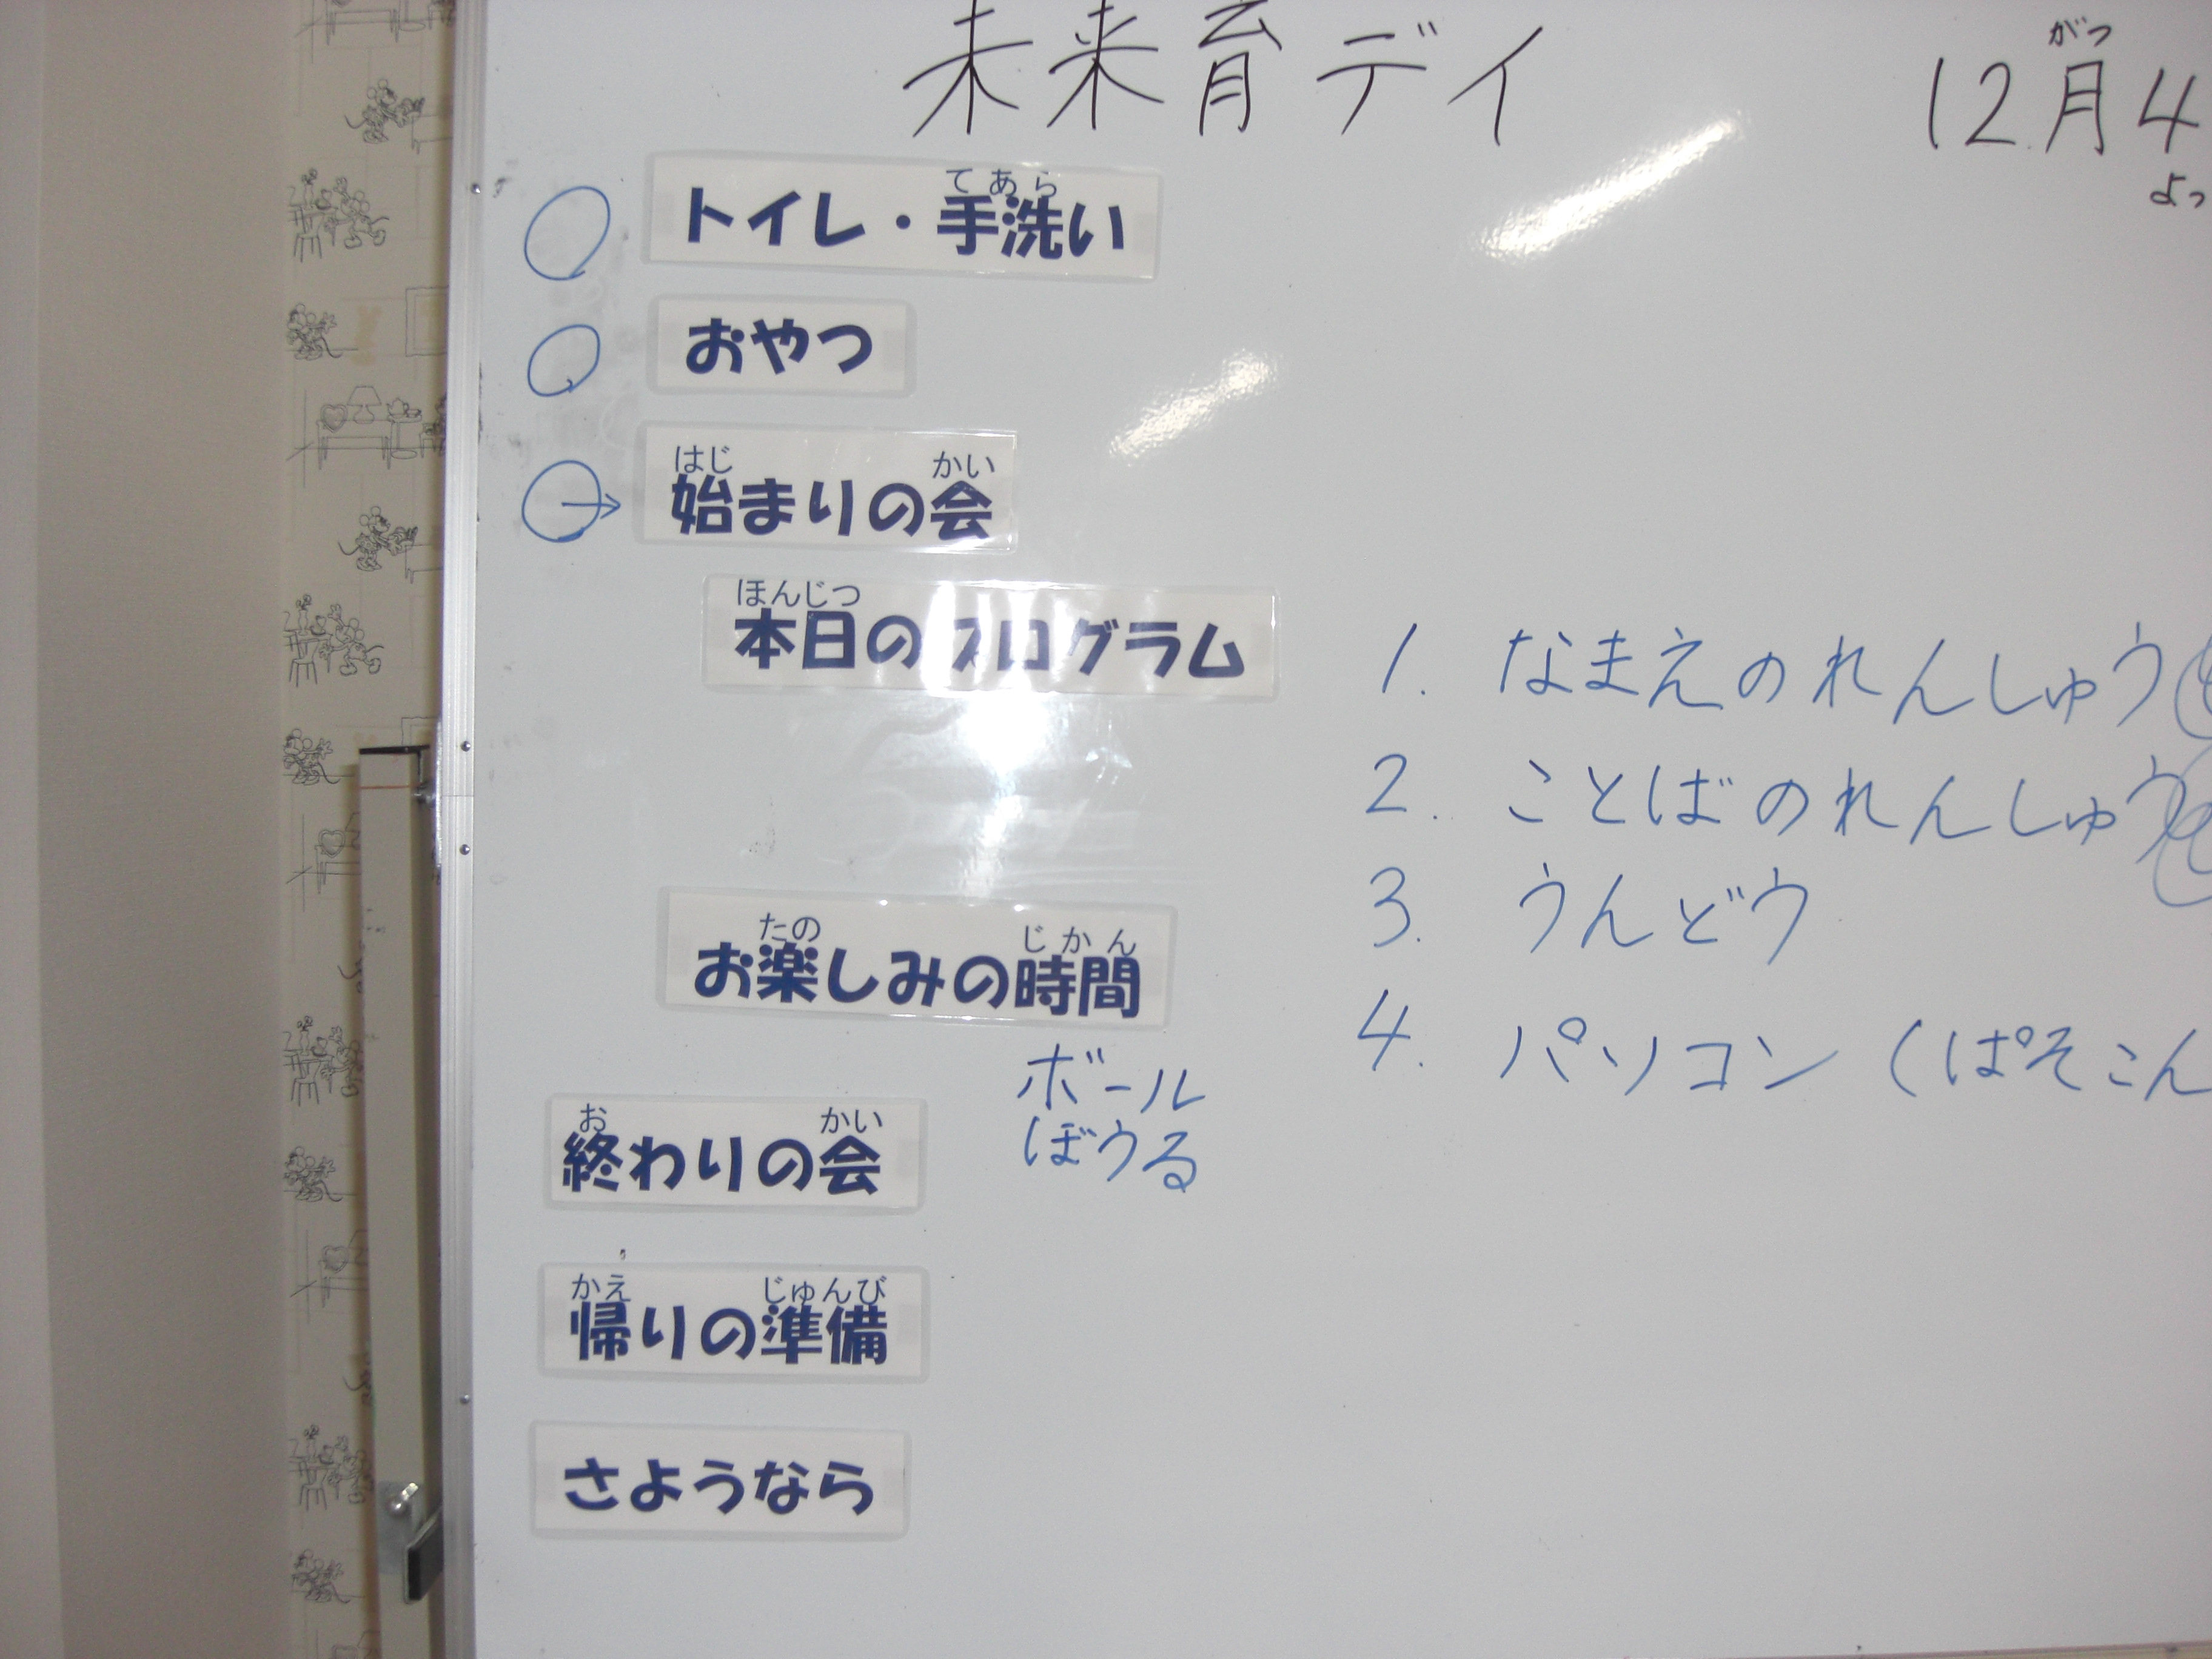 未来育デイ
がつ
12月4
よっ
てあら
トイレ・手洗い
おやつ
はじ かい
始まりの会
ほんじつ
本日のプログラム
1. なまえのれんしゅう
2. ことばのれんしゅう
3. うんどう
4. パソコン (ぱそこん
たの じかん
お楽しみの時間
ボール
ぼうる
お かい
終わりの会
かえ じゅんび
帰りの準備
さようなら